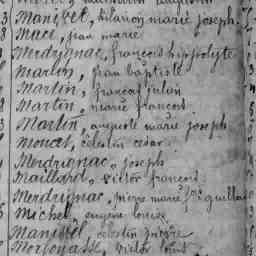 Manisset, hilarion marie joseph
Macé, jean marie
Merdrignac, françois hippolyte
Martin, jean baptiste
Martin, françois julien
Martin, marie françois
Martin, auguste marie joseph
Moncet, célestin césar
Merdrignac, joseph
Maillard, victor françois
Merdrignac, pierre marie
Michel, eugène louis
célestin
victor louis